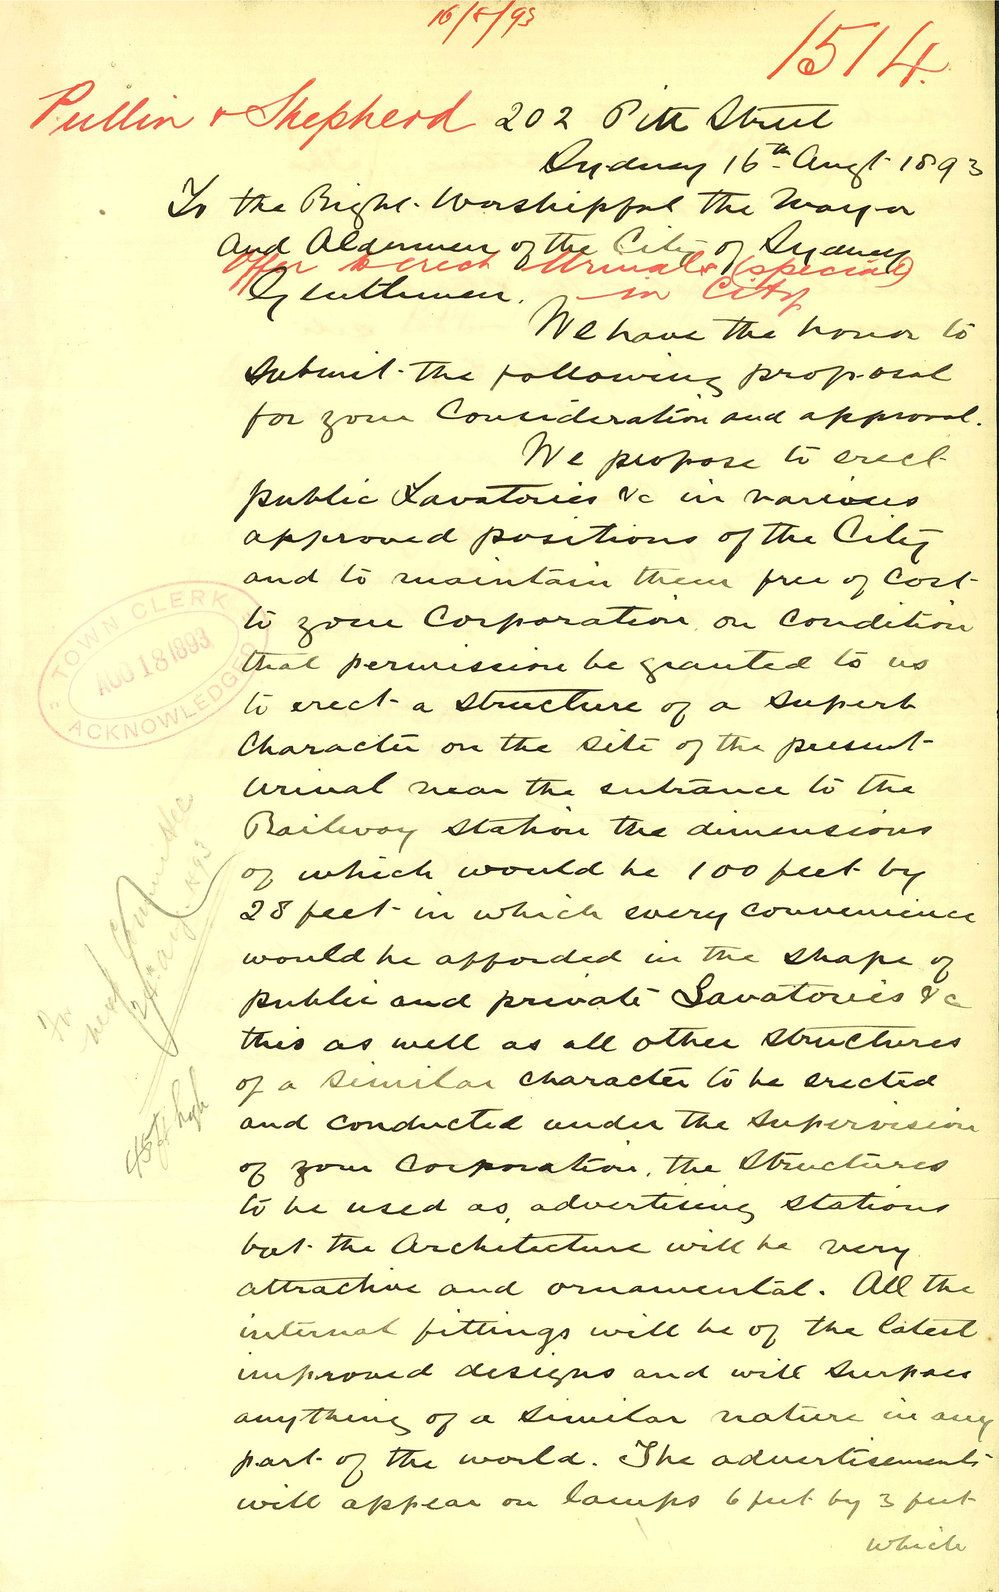 16/8/93
1514.
Pullin & Shepherd 202 Pitt Street
Sydney 16th Augt 1893
To the Right Worshipful the Mayor
and Aldermen of the City of Sydney
Offer to erect Urinals (special)
in City
Gentlemen.
We have the honor to
submit the following proposal
for your Consideration and approval.
We propose to erect
public Lavatories &c in various
approved positions of the City
and to maintain them free of Cost
to your Corporation on Condition
that permission be granted to us
to erect a structure of a superb
Character on the site of the present
Urinal near the entrance to the
Railway station the dimensions
of which would be 100 feet by
28 feet in which every convenience
would be afforded in the shape of
public and private Lavatories &c
this as well as all other structures
of a similar character to be erected
and conducted under the supervision
of your Corporation, the structures
to be used as advertising stations
but the Architecture will be very
attractive and ornamental. All the
internal fittings will be of the latest
improved designs and will surpass
anything of a similar nature in any
part of the world. The advertisements
will appear on lamps 6 feet by 3 feet
which
TOWN CLERK
AUG 18 1893
ACKNOWLEDGED
45 ft high